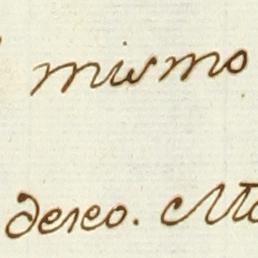 mismo
deseo.